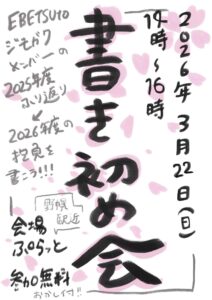 2026年3月22日(日)
14時〜16時
書き初め会
EBETSUTO
ジモガク
メンバーの
2025年度
ふり返り
2026年度の
抱負を
書こう!!!
野幌
駅近
会場
ぷらっと
参加無料
おかし付!!